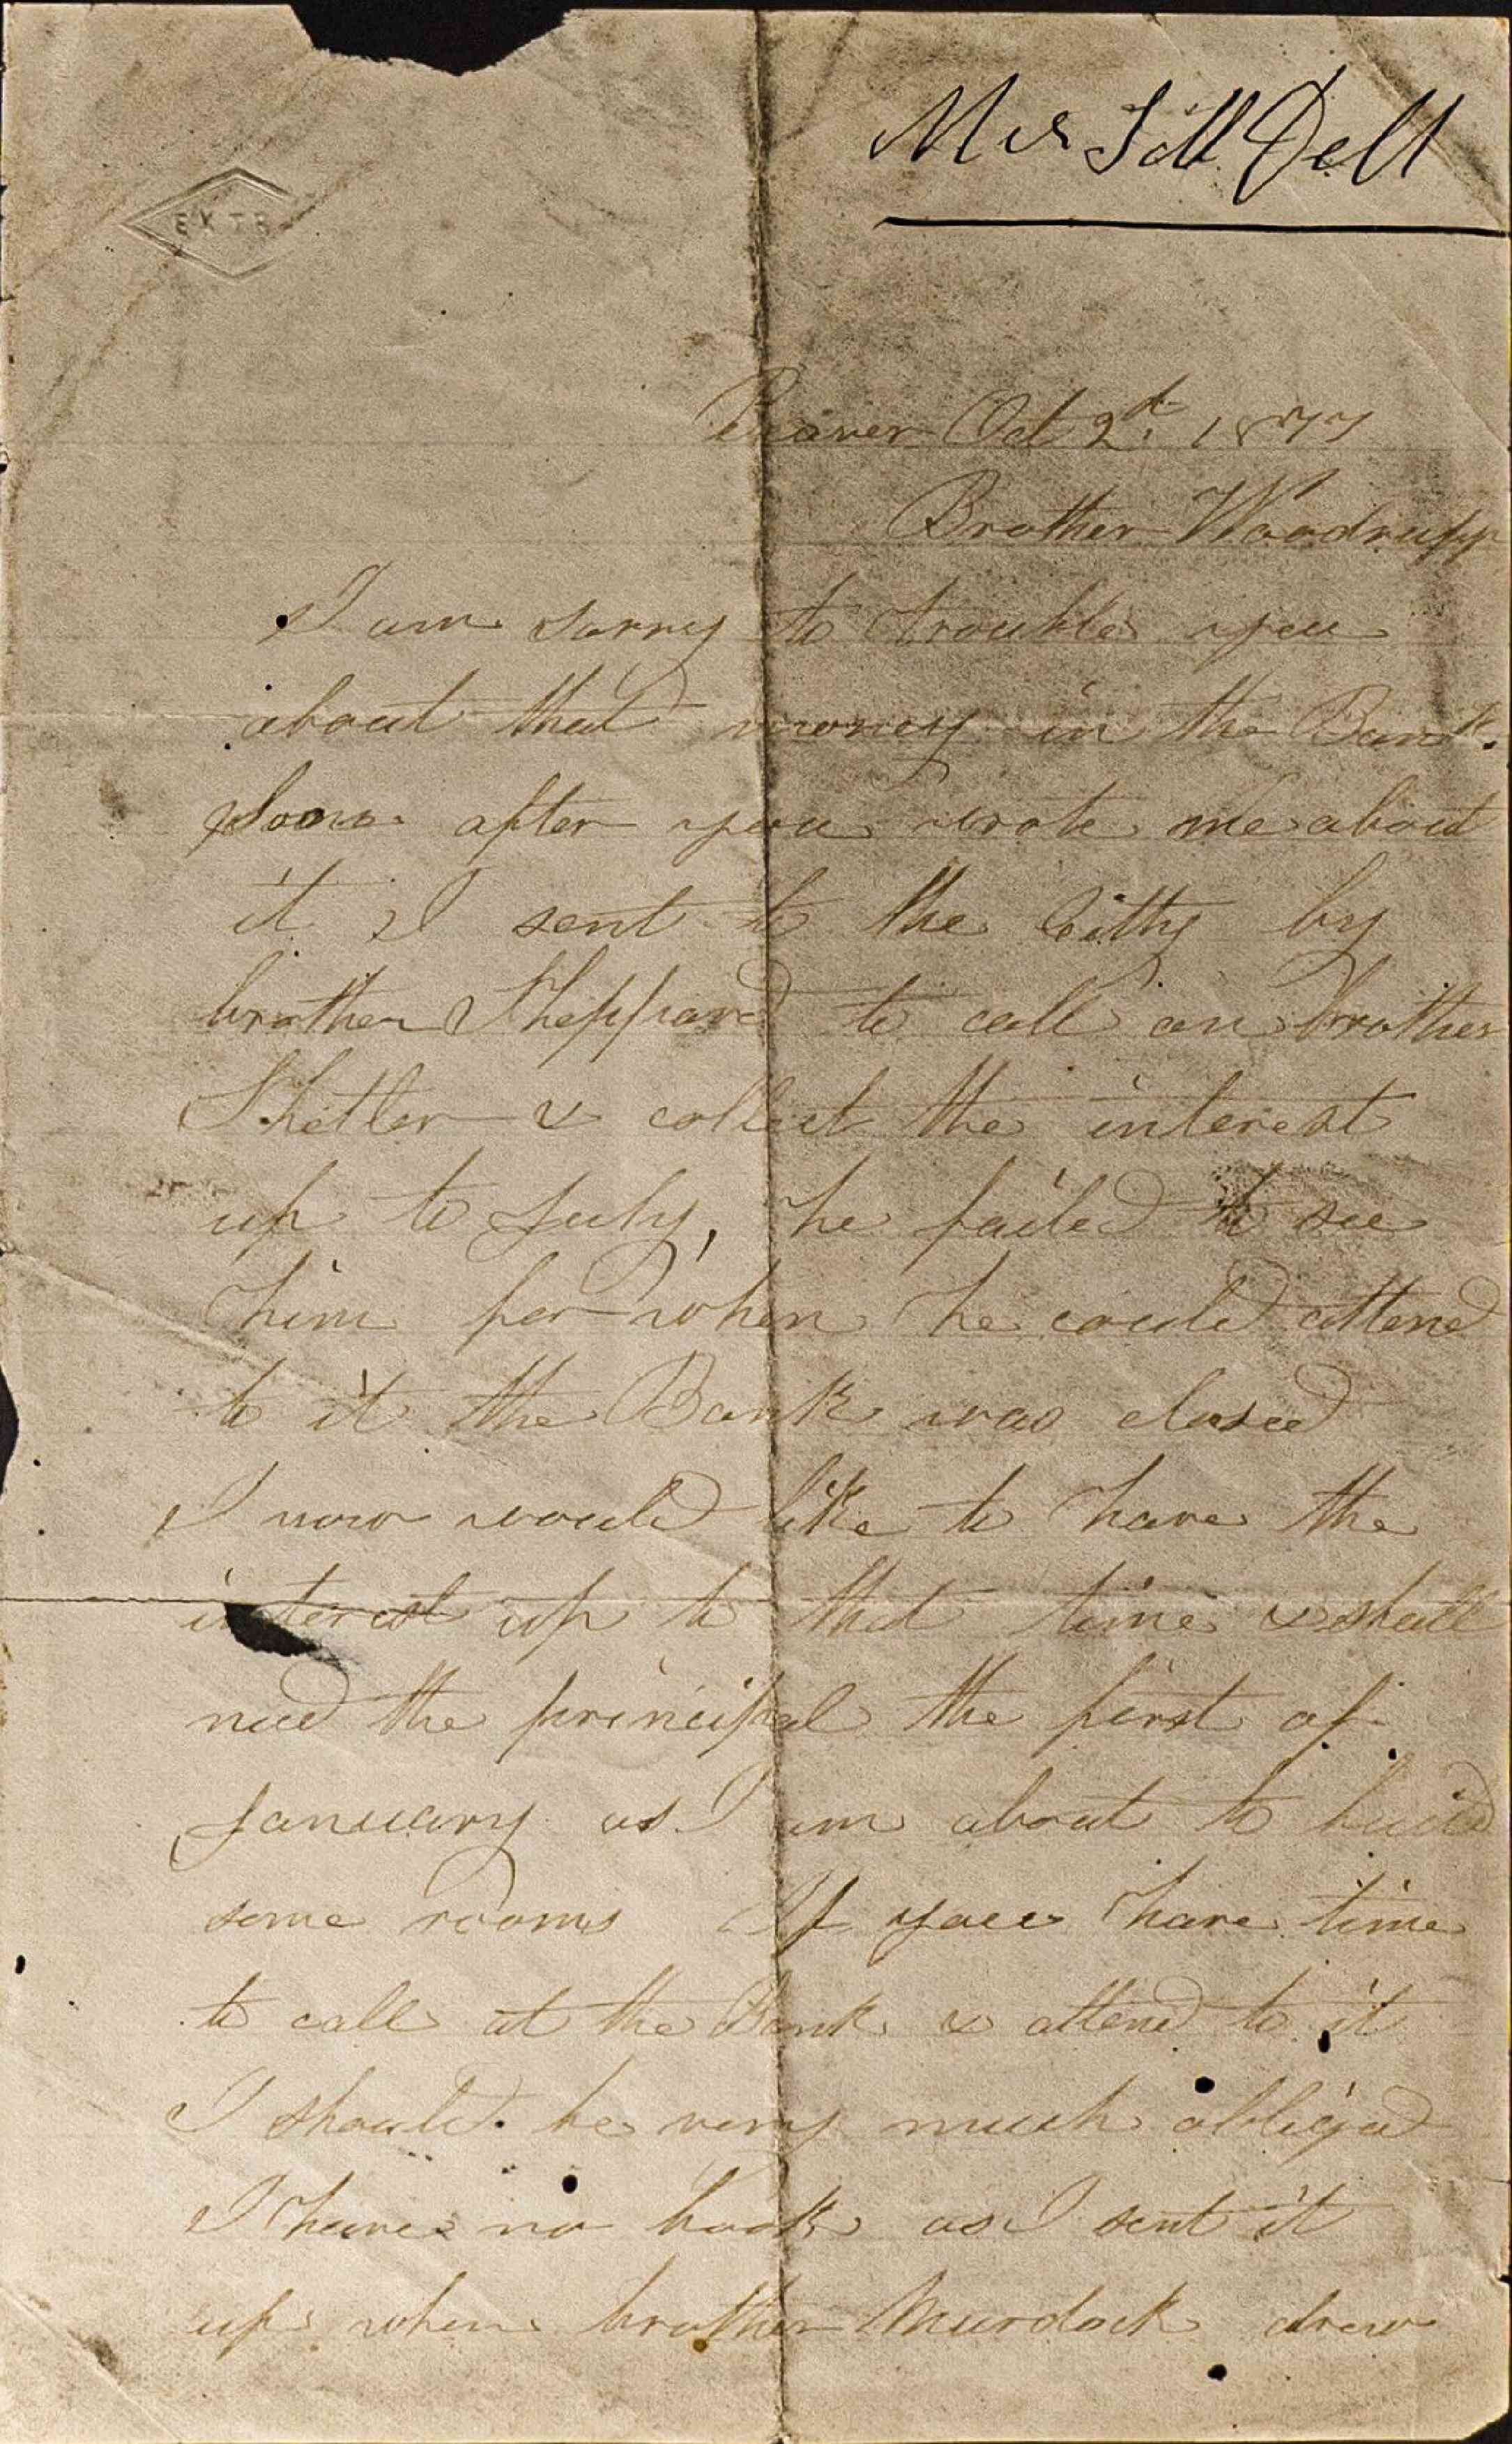 EXTR
Beaver Oct 2d. 1877
Brother Woodruff
I am sorry to trouble you
about that money in the Bank.
Soon after you wrote me about
it I sent to the Citty by
brother Sheppard to call on brother
Shetler & collect the interest
up to July, he failed to see
him for when he could attend
to it the Bank was closed
I now would like to have the
interest up to that time & shall
need the principal the first of
January as I am about to build
some rooms If you have time
to call at the Bank & attend to it
I should be very much obliged
I have no book as I sent it
up when brother Murdock drew